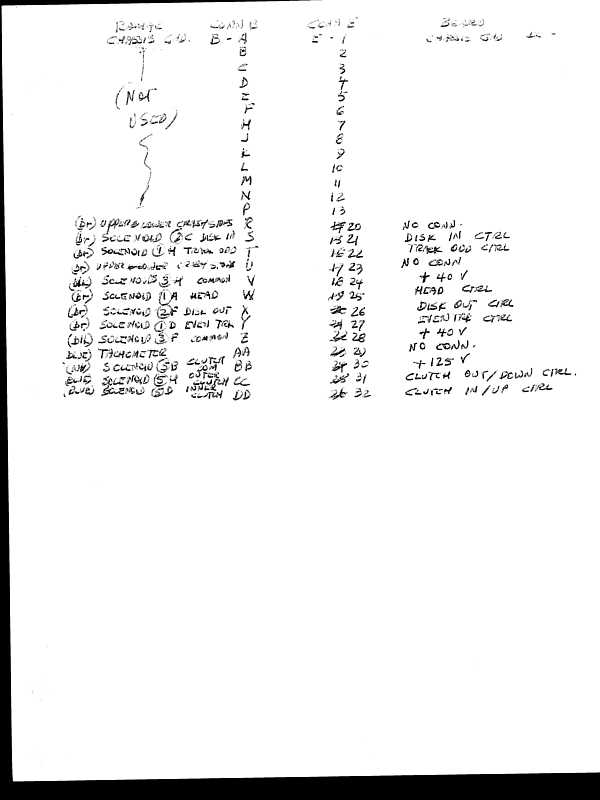 CONN B CONN E
CHASSIS GND. B - A E - 1 CHASSIS GND
B 2
C 3
D 4
(NOT E 5
USED) F 6
H 7
J 8
K 9
L 10
M 11
N 12
P 13
(br) UPPER & LOWER R 20 NO CONN.
(br) SOLENOID 2 C DISK IN S 21 DISK IN CTRL
(br) SOLENOID 1 H TRACK ODD T 22 TRACK ODD CTRL
(br) UPPER U 23 NO CONN
SOLENOID 3 H COMMON V 24 + 40 V
(br) SOLENOID 1 A HEAD W 25 HEAD CTRL
(br) SOLENOID 2 F DISK OUT X 26 DISK OUT CTRL
(br) SOLENOID 1 D EVEN TRK Y 27 EVEN TRK CTRL
SOLENOID 3 F COMMON Z 28 + 40 V
BLUE) TACHOMETER AA 29 NO CONN.
SOLENOID 5 B CLUTCH COM BB 30 + 125 V
BLUE SOLENOID 5 H OUTER CLUTCH CC 31 CLUTCH OUT/DOWN CTRL.
(BLUE) SOLENOID 5 D INNER CLUTCH DD 32 CLUTCH IN/UP CTRL